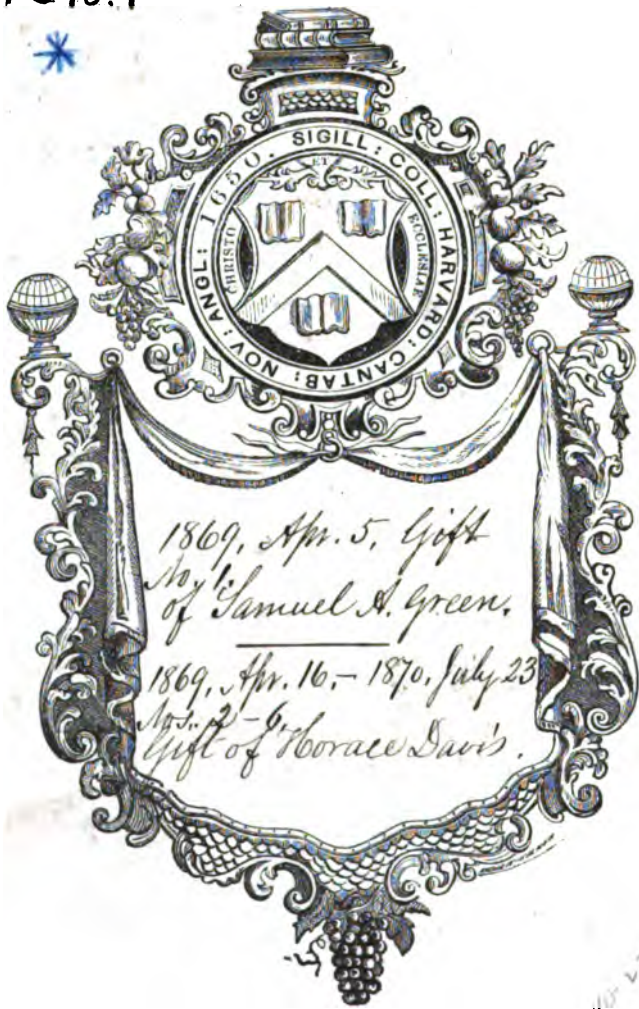 SIGILL: COLL: HARVARD: CANTAB: NOV: ANGL: 1650.
CHRISTO ET ECCLESIAE
1869, Apr. 5, Gift
No. 1.
of Samuel A. Green.
1869, Apr. 16, - 1870, July 23
Nos. 2 - 6,
Gift of Horace Davis.